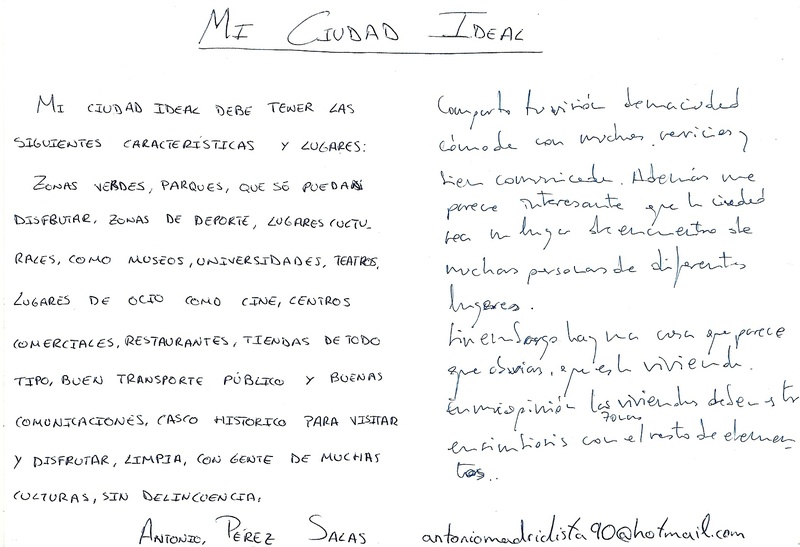 MI CIUDAD IDEAL
MI CIUDAD IDEAL DEBE TENER LAS
SIGUIENTES CARACTERÍSTICAS Y LUGARES:
ZONAS VERDES, PARQUES, QUE SE PUEDAN
DISFRUTAR, ZONAS DE DEPORTE, LUGARES CULTU-
RALES, COMO MUSEOS, UNIVERSIDADES, TEATROS,
LUGARES DE OCIO COMO CINE, CENTROS
COMERCIALES, RESTAURANTES, TIENDAS DE TODO
TIPO, BUEN TRANSPORTE PÚBLICO Y BUENAS
COMUNICACIONES, CASCO HISTORICO PARA VISITAR
Y DISFRUTAR, LIMPIA, CON GENTE DE MUCHAS
CULTURAS, SIN DELINCUENCIA.
ANTONIO, PÉREZ SALAS
Comparto tu visión de una ciudad
cómoda con muchos servicios y
bien comunicada. Además me
parece interesante que la ciudad
sea un lugar de encuentro de
muchas personas de diferentes
lugares.
Sin embargo hay una cosa que parece
que obvias, que es la vivienda.
En mi opinión las viviendas deben
en simbiosis con el resto de elemen-
tos..
antoniomadridista90@hotmail.com